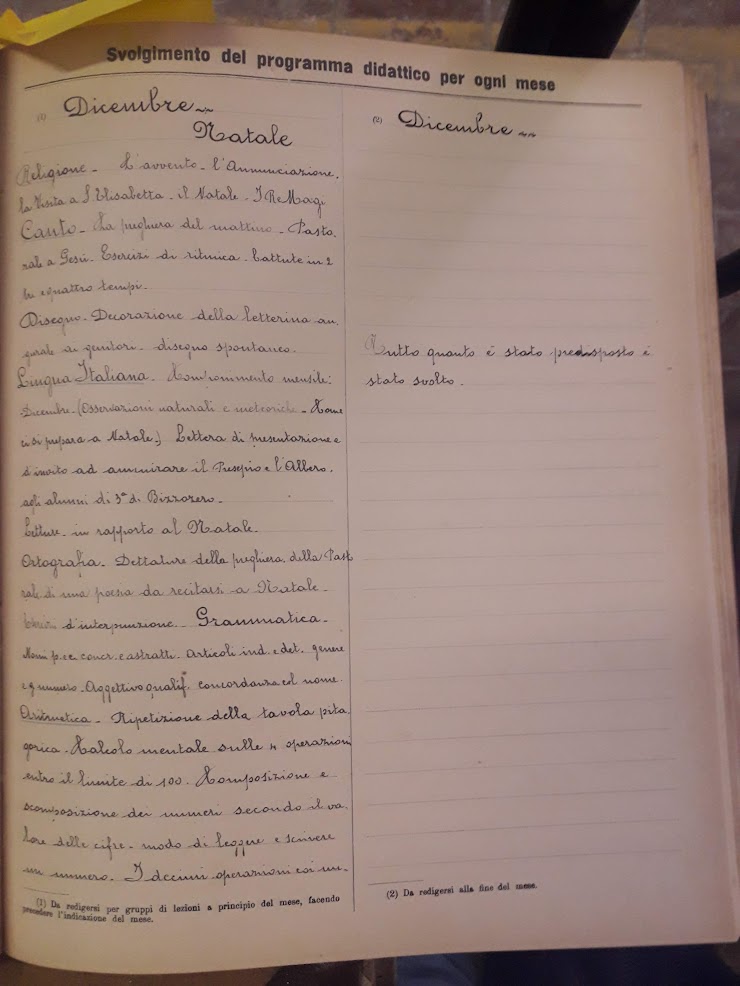 Svolgimento del programma didattico per ogni mese
(1) Dicembre
Natale
Religione - L'avvento - l'Annunciazione.
la Visita a S. Elisabetta - il Natale - I Re Magi
Canto - La preghiera del mattino - Pasto.
rale a Gesù - Esercizi di ritmica - battute in 2
tre e quattro tempi -
Disegno - Decorazione della letterina au.
gurale ai genitori - disegno spontaneo.
Lingua Italiana - Componimento mensile:
Dicembre - (Osservazioni naturali e meteoriche - Come
ci si prepara a Natale.) Lettera di presentazione e
d'invito ad ammirare il Presepio e l'Albero.
agli alunni di 3ª di Bizzozero -
Letture - in rapporto al Natale -
Ortografia - Dettature della preghiera, della Past
rale di una poesia da recitarsi a Natale -
d'interpunzione - Grammatica -
Nomi p. e c. concr. e astratti - Articoli ind. e det. genere
e numero - Aggettivo qualif. concordanza col nome.
Aritmetica - Ripetizione della tavola pita.
gorica - Calcolo mentale sulle 4 operazioni
entro il limite di 100. Composizione e
scomposizione dei numeri secondo il va.
lore delle cifre - modo di leggere e scrivere
un numero. I decimi - operazioni coi nu-
(1) Da redigersi per gruppi di lezioni a principio del mese, facendo
precedere l'indicazione del mese.
(2) Dicembre
Tutto quanto è stato predisposto è
stato svolto.
(2) Da redigersi alla fine del mese.